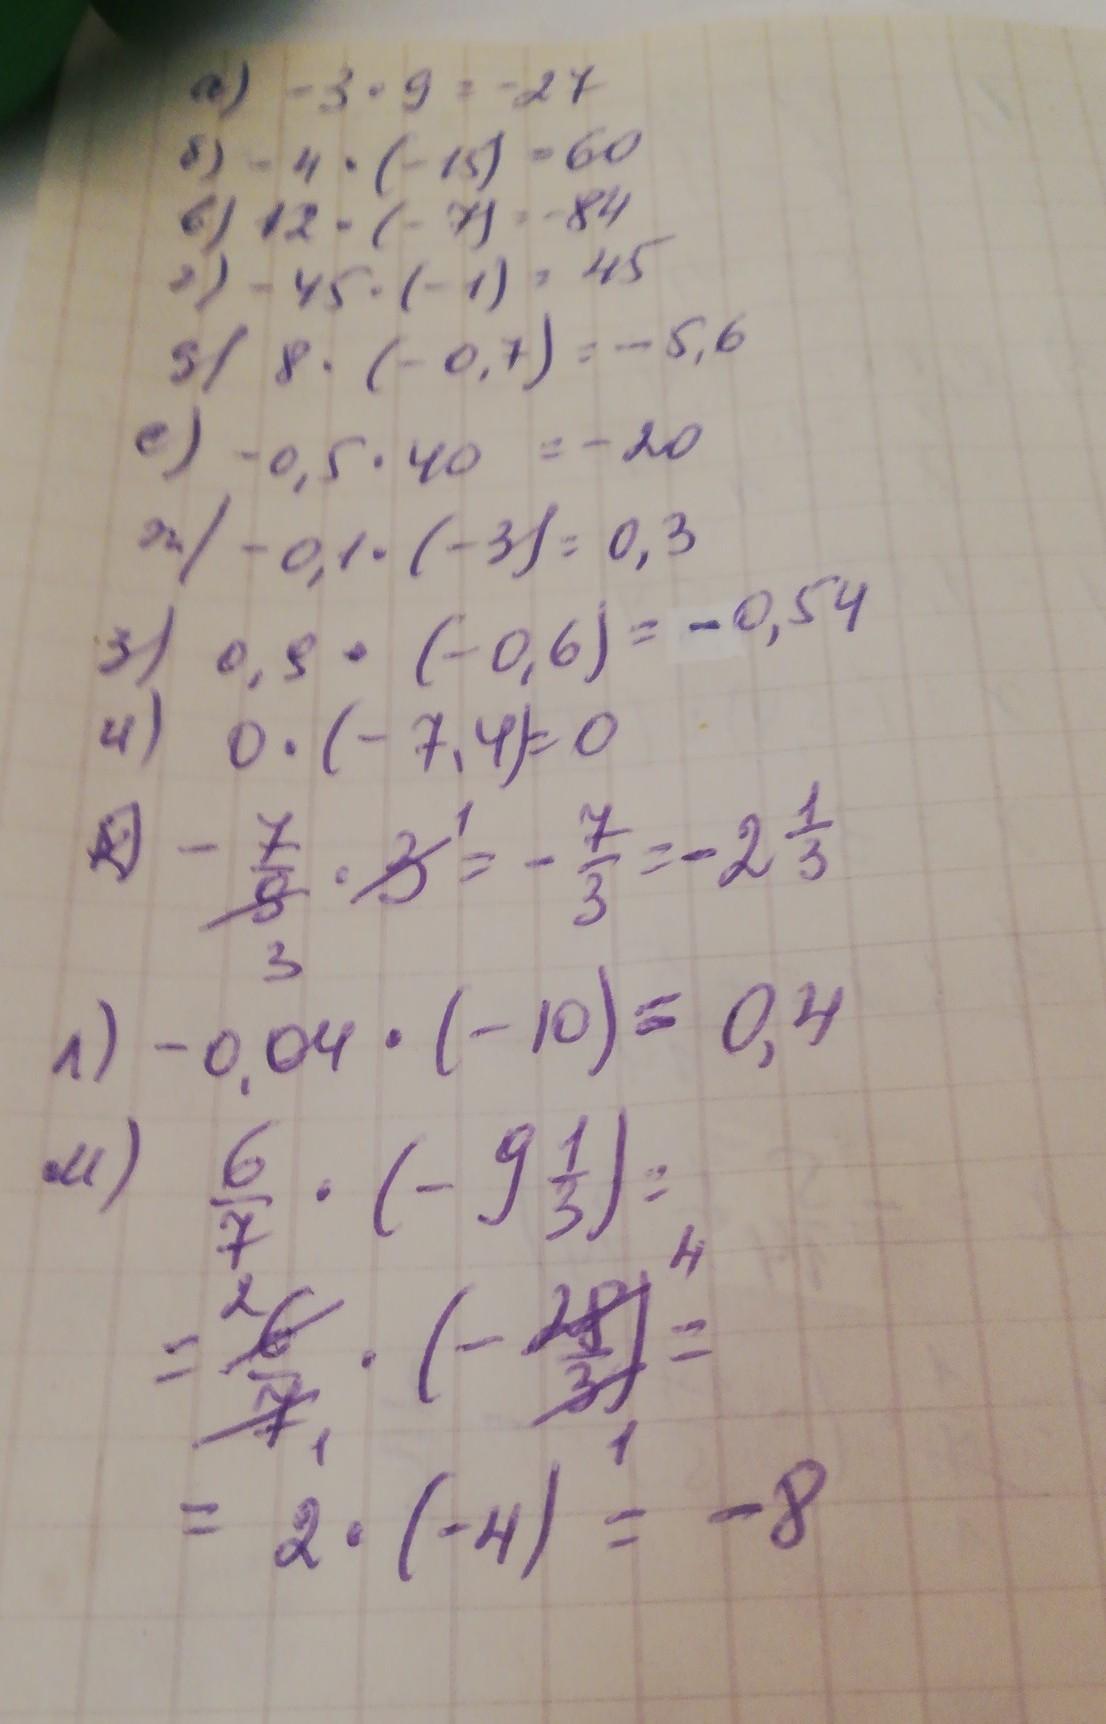 а) -3 · 9 = -27
б) -4 · (-15) = 60
в) 12 · (-7) = -84
г) -45 · (-1) = 45
д) 8 · (-0,7) = -5,6
е) -0,5 · 40 = -20
ж) -0,1 · (-3) = 0,3
з) 0,9 · (-0,6) = -0,54
и) 0 · (-7,4) = 0
к) -7/9 · 3 = -7/3 = -2 1/3
1
3
л) -0,04 · (-10) = 0,4
м) 6/7 · (-9 1/3) =
2 4
= 6/7 · (-28/3) =
1 1
= 2 · (-4) = -8